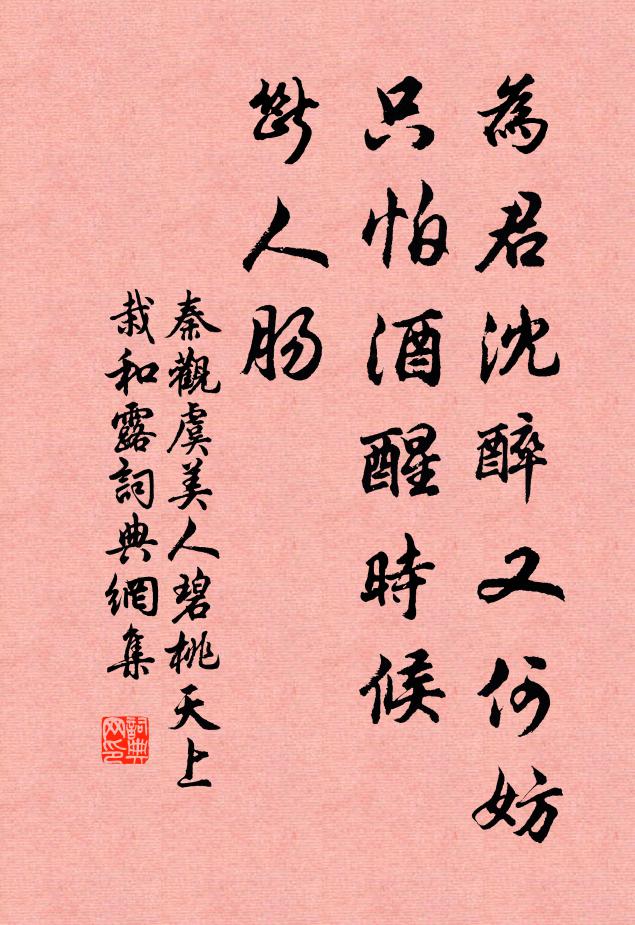 為君沈醉又何妨
只怕酒醒時候
斷人肠
秦觀虞美人碧桃天上
栽和露詞典網集
詞典
网印